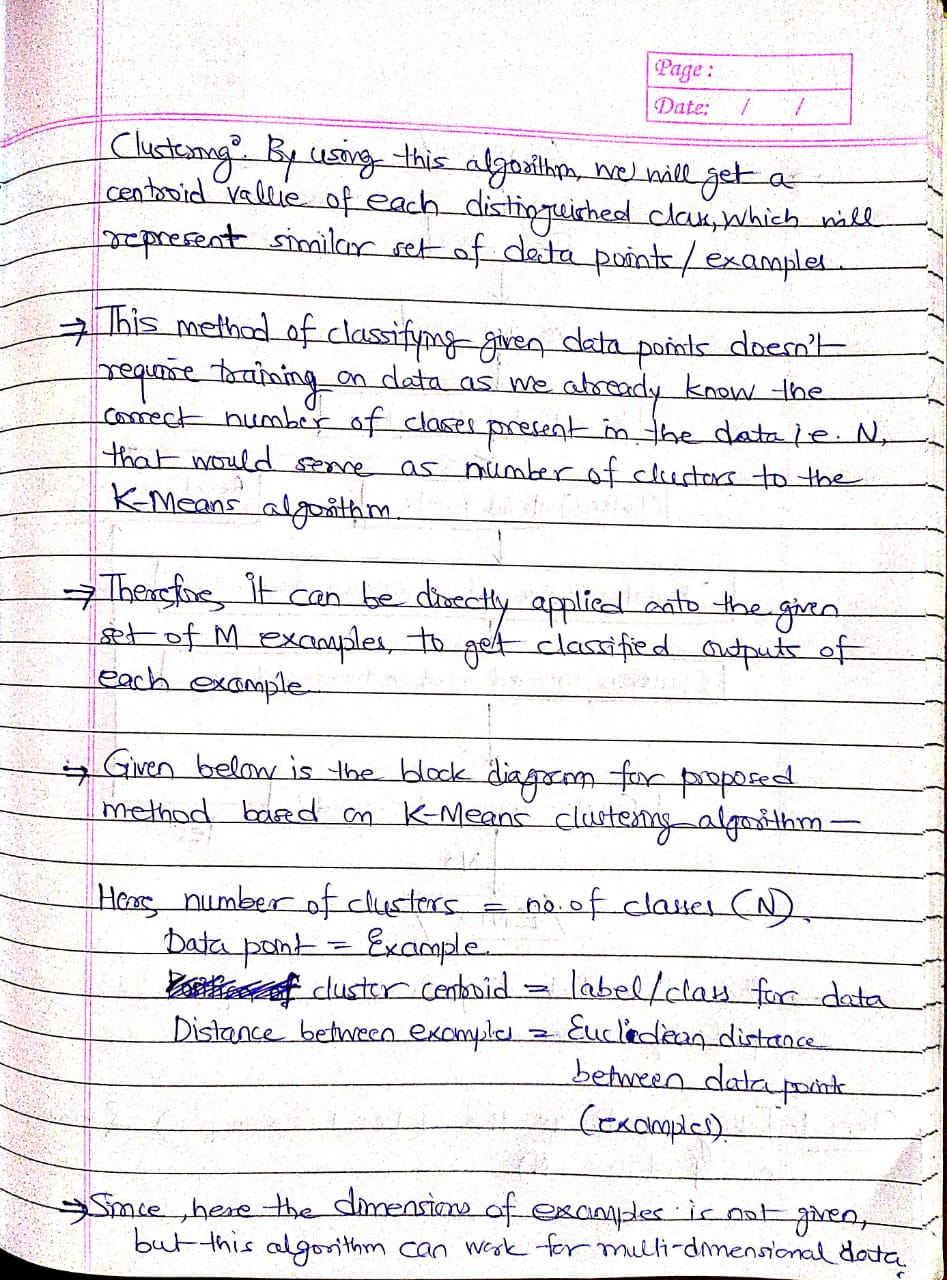 Page :
Date: / /
Clustering". By using this algorithm, we will get a
centroid value of each distinguished class, which will
represent similar set of data points / examples.
→ This method of classifying given data points doesn't
require training on data as we already know the
correct number of classes present in the data i.e. N,
that would serve as number of clusters to the
K-Means algorithm.
→ Therefore, it can be directly applied onto the given
set of M examples, to get classified outputs of
each example
→ Given below is the block diagram for proposed
method based on K-Means clustering algorithm –
Here, number of clusters = no. of classes (N).
Data point = Example.
cluster centroid = label/class for data
Distance between examples = Euclidean distance
between data points
(examples)
→ Since, here the dimensions of examples is not given,
but this algorithm can work for multi-dimensional data.